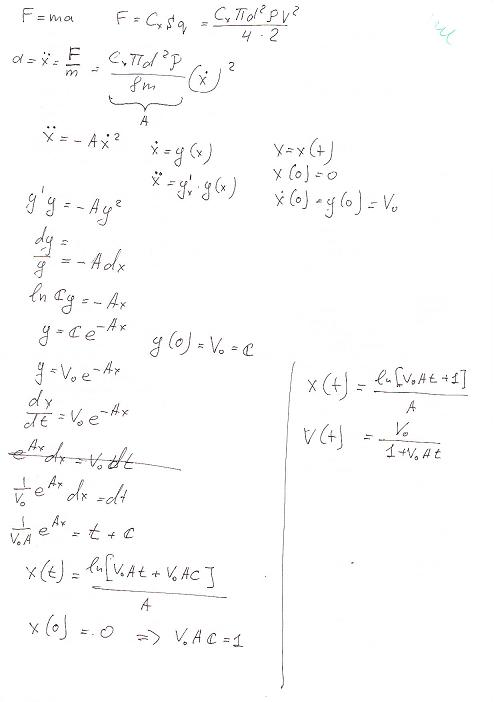 F = ma F = CₓSq = CₓΠd²ρV² / 4·2
a = ẍ = F/m = CₓΠd²ρ / 8m (ẋ)²
A
ẍ = -Aẋ² ẋ = y(x) x = x(t)
ẍ = y'ₓ · y(x) x(0) = 0
ẋ(0) = y(0) = V₀
y'y = -Ay²
dy/y = -Adx
ln Cy = -Ax
y = Ce^(-Ax) y(0) = V₀ = C
y = V₀e^(-Ax)
dx/dt = V₀e^(-Ax)
e^(Ax) dx = V₀ dt
1/V₀ e^(Ax) dx = dt
1/(V₀A) e^(Ax) = t + C
x(t) = ln[V₀At + V₀AC] / A
x(0) = 0 => V₀AC = 1
x(t) = ln[V₀At + 1] / A
V(t) = V₀ / (1 + V₀At)